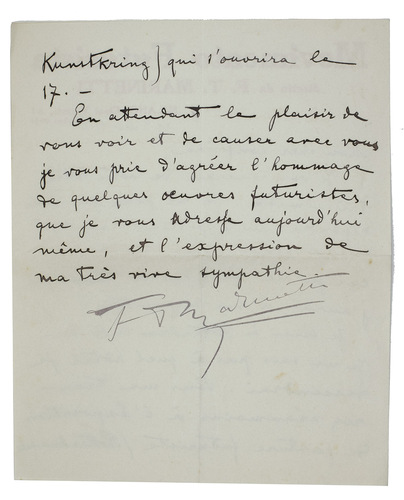 Kunstkring) qui s'ouvrira le
17. —
En attendant le plaisir de
vous voir et de causer avec vous
je vous prie d'agréer l'hommage
de quelques œuvres futuristes,
que je vous adresse aujourd'hui
même, et l'expression de
ma très vive sympathie.
F T Marinetti